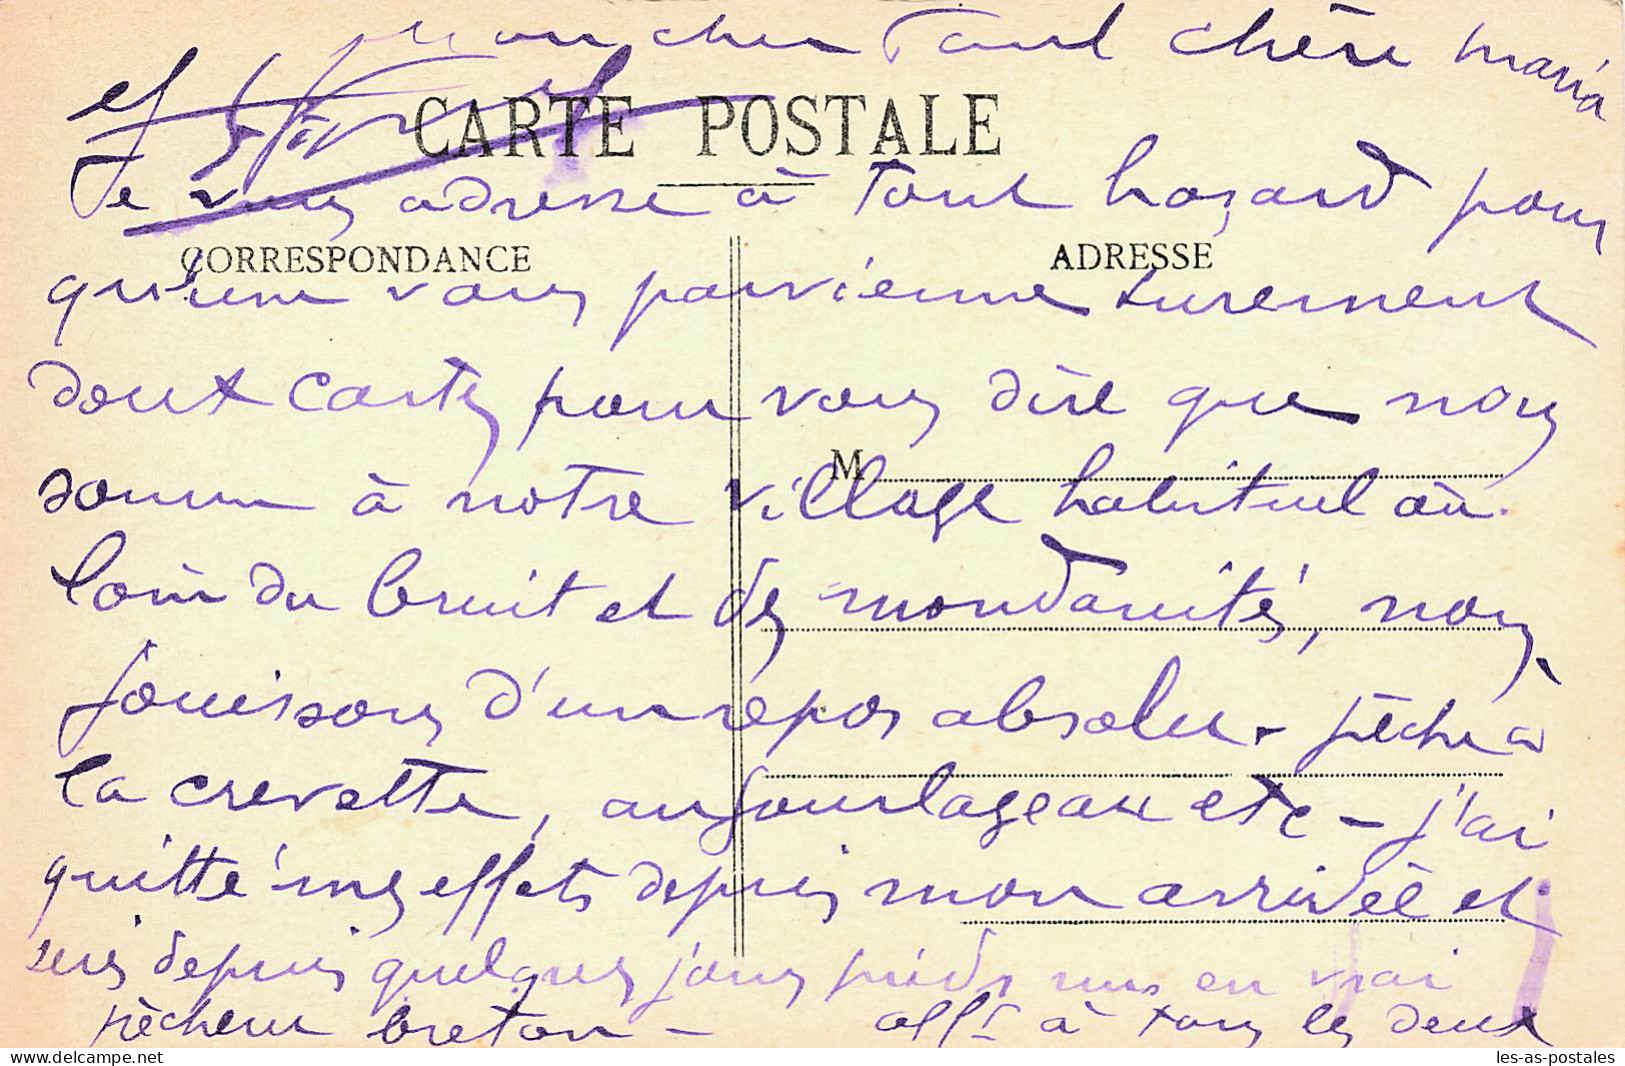 mon cher Paul chère Maria
et
CARTE POSTALE
Je vous adresse à tout hazard pour
CORRESPONDANCE
ADRESSE
qu'une vous parvienne surement
deux cartes pour vous dire que nous
M
somme à notre village habituel au
loin du bruit et des mondanités, nous
jouissons d'un repos absolu - pêche à
la crevette, au jourlageaux etc - j'ai
quitté mes effets depuis mon arrivée et
suis depuis quelques jours pieds nus en vrai
pêcheur breton - aff^t à tous les deux
Purchase the item without watermark
les-as-postales